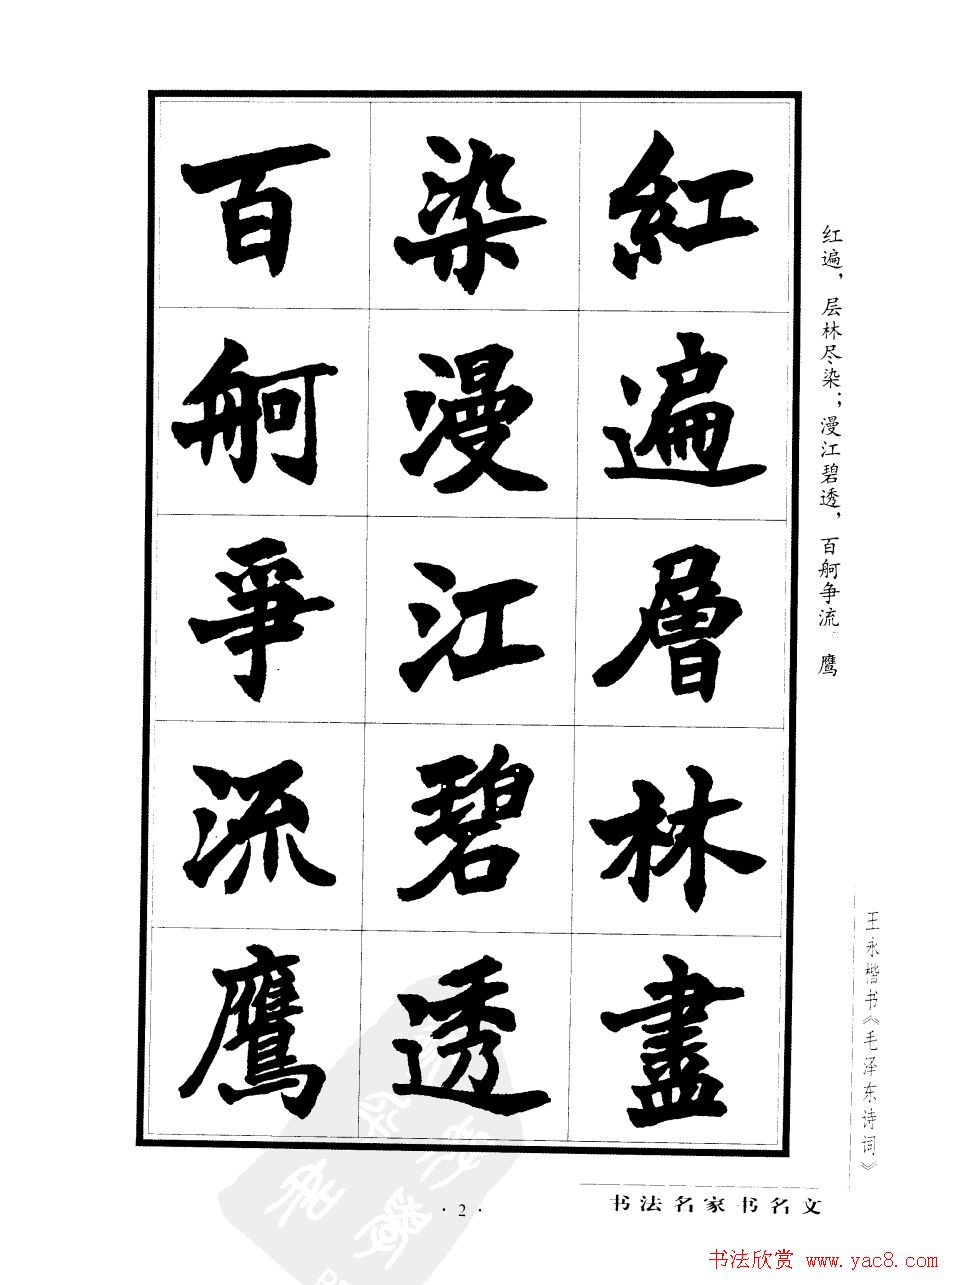 紅遍層林盡
染漫江碧透
百舸爭流鷹
红遍，层林尽染；漫江碧透，百舸争流。鹰
王永楷书《毛泽东诗词》
书法名家书名文
· 2 ·
书法欣赏 www.yac8.com